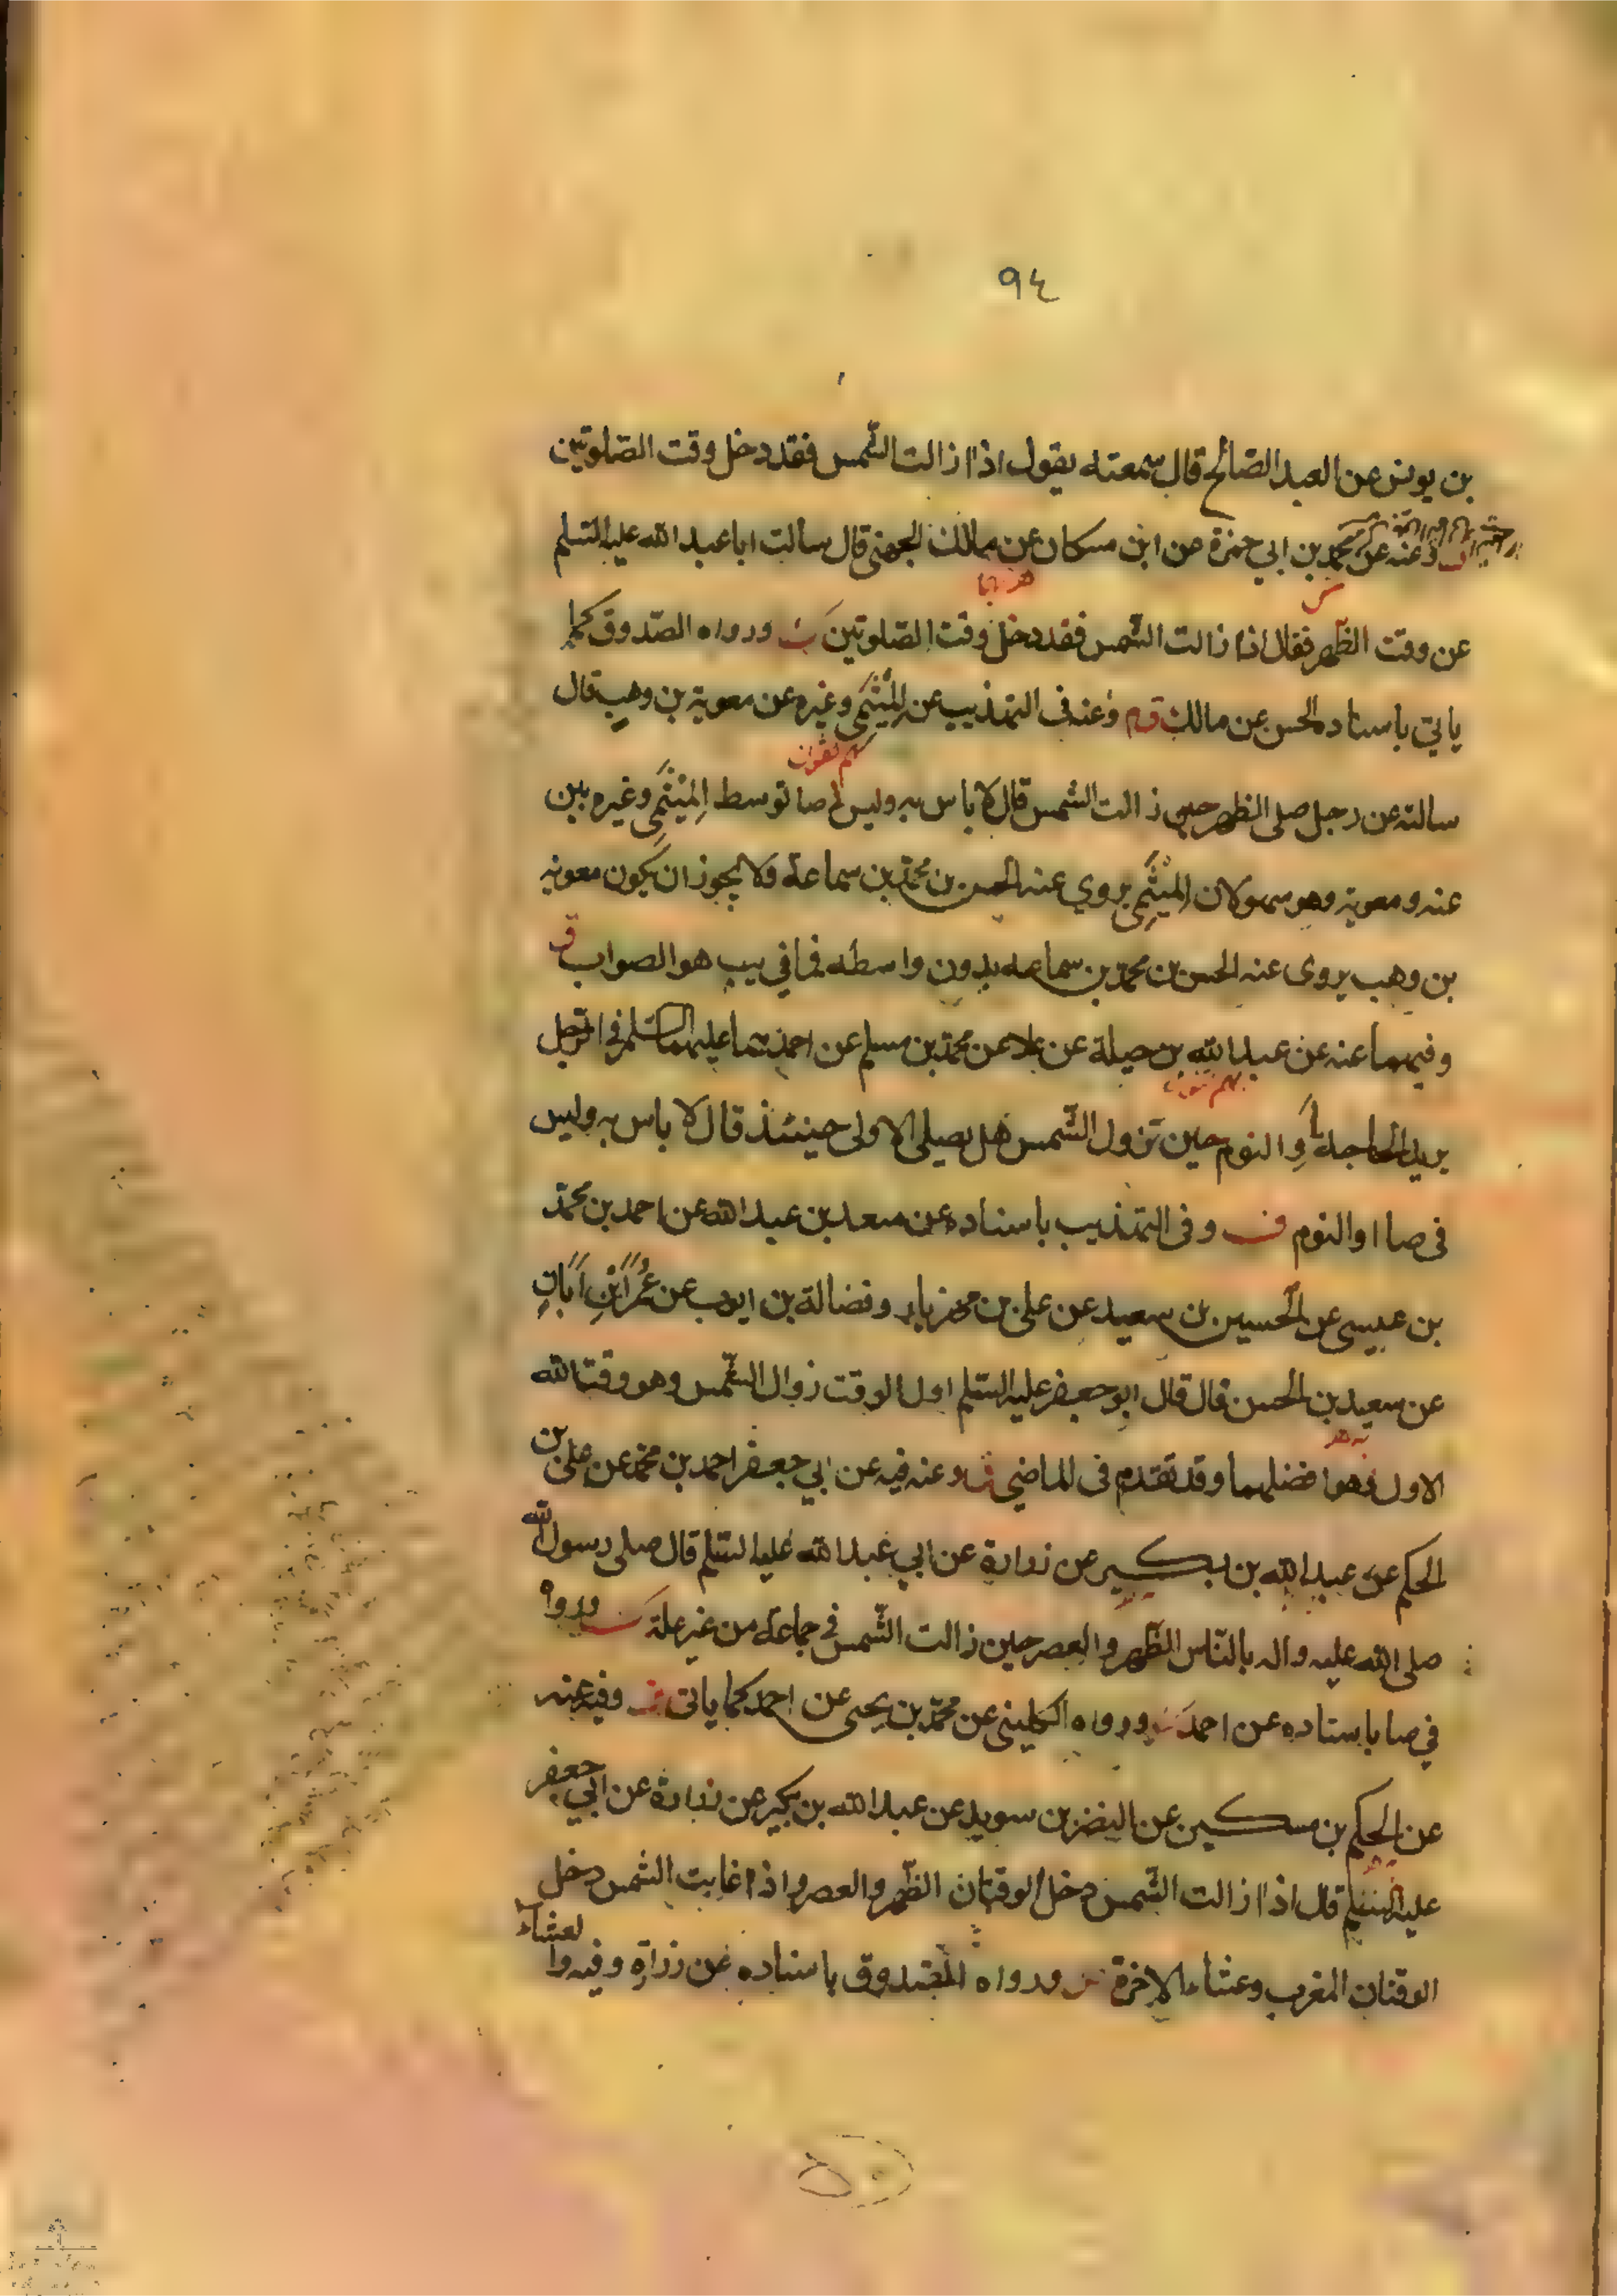 ٩٤
بن يونس عن العبد الصالح قال سمعته يقول اذا زالت الشمس فقد دخل وقت الصلوتين
وعنه عن محمد بن ابي حمزة عن ابن مسكان عن مالك الجهني قال سالت ابا عبد الله عليه السلم
عن وقت الظهر فقال اذا زالت الشمس فقد دخل وقت الصلوتين ورواه الصدوق كما
ياتي باسناده الحسن عن مالك وعنه في التهذيب عن الميثمي وغيره عن معوية بن وهب قال
سالته عن رجل صلى الظهر حين زالت الشمس قال لا باس به وليس في صا توسط الميثمي وغيره بين
عنه ومعوية وهو سهو لان الميثمي يروي عنه الحسن بن محمد بن سماعة ولا يجوز ان يكون معوية
بن وهب يروى عنه الحسن بن محمد بن سماعه بدون واسطه فما في يب هو الصواب
وفيهما عنه عن عبد الله بن جبلة عن علا عن محمد بن مسلم عن احدهما عليهما السلم في الرجل
يريد الحاجة او النوم حين تزول الشمس هل يصلي الاولى حينئذ قال لا باس به وليس
في صا او النوم وفى التهذيب باسناده عن سعد بن عبد الله عن احمد بن محمد
بن عيسى عن الحسين بن سعيد عن علي بن مهزيار وفضالة بن ايوب عن عمر ابن ابان
عن سعيد بن الحسن قال قال ابو جعفر عليه السلم اول الوقت زوال الشمس وهو وقت الله
الاول وهو افضلهما وقد تقدم فى الماضي وعنه فيه عن ابي جعفر احمد بن محمد عن علي بن
الحكم عن عبد الله بن بكير عن زرارة عن ابي عبد الله عليه السلم قال صلى رسول الله
صلى الله عليه واله بالناس الظهر والعصر حين زالت الشمس في جماعة من غير علة ورواه
في صا باسناده عن احمد ورواه الكليني عن محمد بن يحيى عن احمد كما ياتى وفيه عنه
عن الحكم بن مسكين عن النضر بن سويد عن عبد الله بن بكير عن زرارة عن ابي جعفر
عليه السلم قال اذا زالت الشمس دخل الوقتان الظهر والعصر واذا غابت الشمس دخل
الوقتان المغرب وعشاء الاخرة ورواه الصدوق باسناده عن زرارة وفيه والعشاء